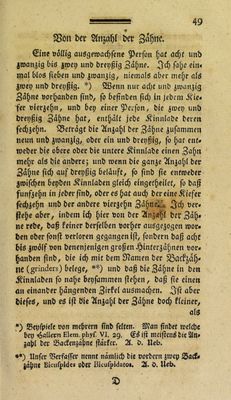 49
Von der Anzahl der Zähne.
Eine völlig ausgewachsene Person hat acht und
zwanzig bis zwey und dreyßig Zähne. Ich sahe ein-
mal blos sieben und zwanzig, niemals aber mehr als
zwey und dreyßig. *) Wenn nur acht und zwanzig
Zähne vorhanden sind, so befinden sich in jedem Kie-
fer vierzehn, und bey einer Person, die zwey und
dreyßig Zähne hat, enthält jede Kinnlade deren
sechzehn. Beträgt die Anzahl der Zähne zusammen
neun und zwanzig, oder ein und dreyßig, so hat ent-
weder die obere oder die untere Kinnlade einen Zahn
mehr als die andere; und wenn die ganze Anzahl der
Zähne sich auf dreyßig beläuft, so sind sie entweder
zwischen beyden Kinnladen gleich eingetheilet, so daß
funfzehn in jeder sind, oder es hat auch der eine Kiefer
sechzehn und der andere vierzehn Zähne. Ich ver-
stehe aber, indem ich hier von der Anzahl der Zäh-
ne rede, daß keiner derselben vorher ausgezogen wor-
den oder sonst verloren gegangen ist, sondern daß acht
bis zwölf von denenjenigen großen Hinterzähnen vor-
handen sind, die ich mit dem Namen der Backzäh-
ne (grinders) belege, **) und daß die Zähne in den
Kinnladen so nahe beysammen stehen, daß sie einen
an einander hängenden Zirkel ausmachen. Ist aber
dieses, und es ist die Anzahl der Zähne doch kleiner,
als
*) Beyspiele von mehrern sind selten. Man findet welche
bey Hallern Elem. phys. VI. 29. Es ist meistens die An-
zahl der Backenzähne stärker. A. d. Ueb.
**) Unser Verfasser nennt nämlich die vordern zwey Back-
zähne Bicuspides oder Bicuspidatos. A. d. Ueb.
D